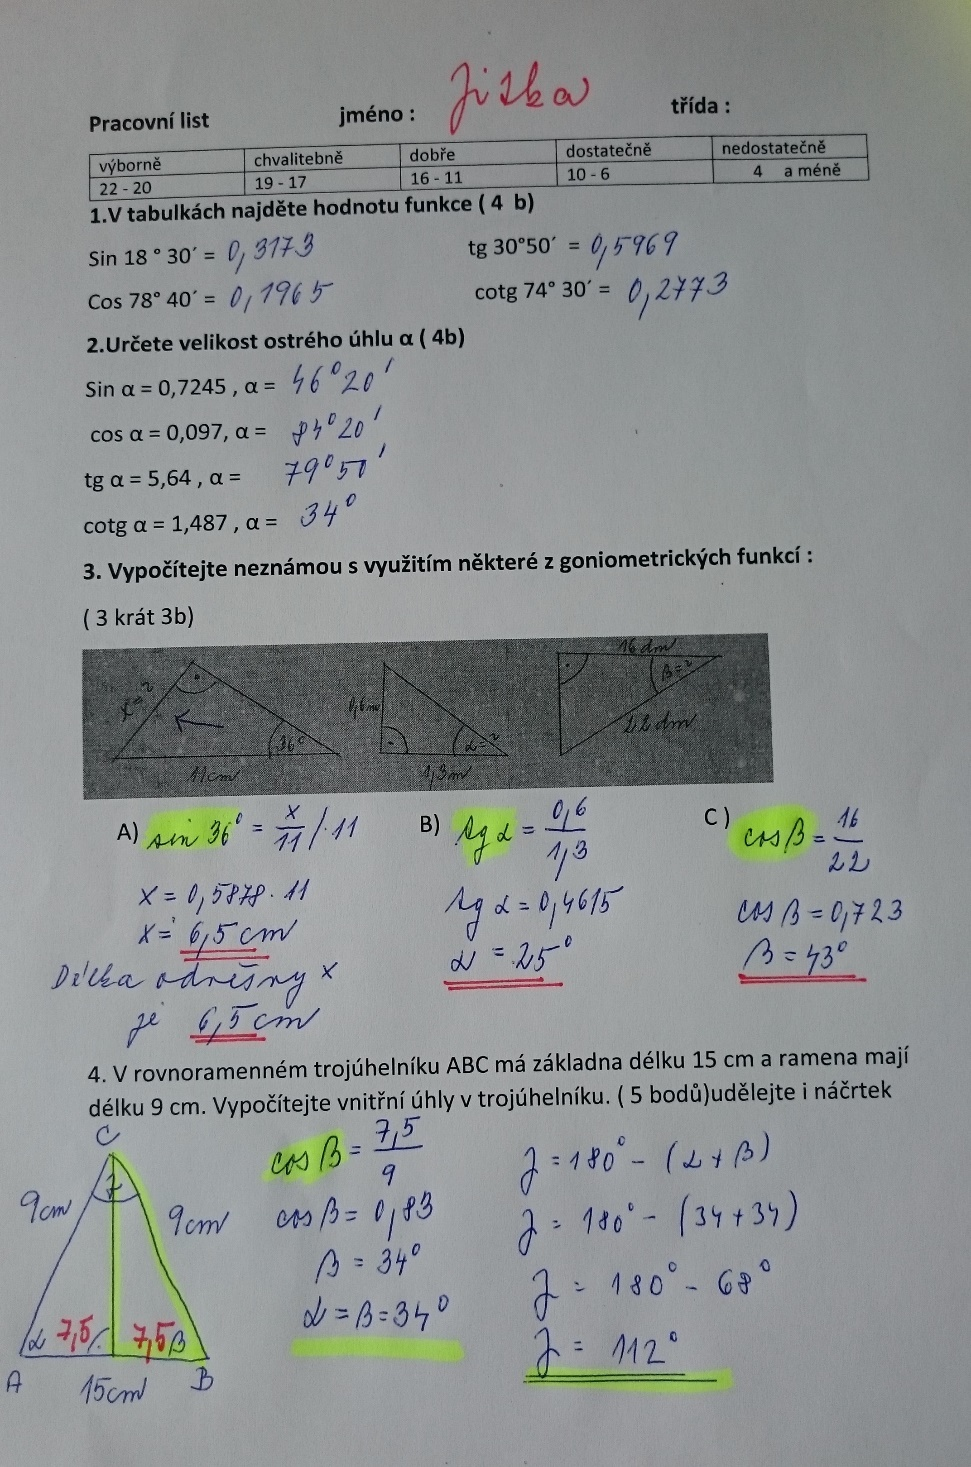 Pracovní list jméno : Jiska třída :
výborně chvalitebně dobře dostatečně nedostatečně
22 - 20 19 - 17 16 - 11 10 - 6 4 a méně
1.V tabulkách najděte hodnotu funkce ( 4 b)
Sin 18 ° 30´ = 0,3173 tg 30°50´ = 0,5969
Cos 78° 40´ = 0,1965 cotg 74° 30´ = 0,2773
2.Určete velikost ostrého úhlu α ( 4b)
Sin α = 0,7245 , α = 46°20'
cos α = 0,097, α = 84°20'
tg α = 5,64 , α = 79°50'
cotg α = 1,487 , α = 34°
3. Vypočítejte neznámou s využitím některé z goniometrických funkcí :
( 3 krát 3b)
x=? 36° 11cm
0,6m α=? 1,3m
16 dm β=? 22 dm
A) sin 36° = x/11 /·11 B) tg α = 0,6/1,3 C) cos β = 16/22
x = 0,5878·11 tg α = 0,4615 cos β = 0,723
x = 6,5 cm α = 25° β = 43°
Délka odvěsny x
je 6,5 cm
4. V rovnoramenném trojúhelníku ABC má základna délku 15 cm a ramena mají
délku 9 cm. Vypočítejte vnitřní úhly v trojúhelníku. ( 5 bodů)udělejte i náčrtek
C cos β = 7,5/9 γ = 180° - (α + β)
9cm 9cm cos β = 0,83 γ = 180° - (34+34)
β = 34° γ = 180° - 68°
α = β = 34° γ = 112°
α 7,5 7,5 β
A 15cm B